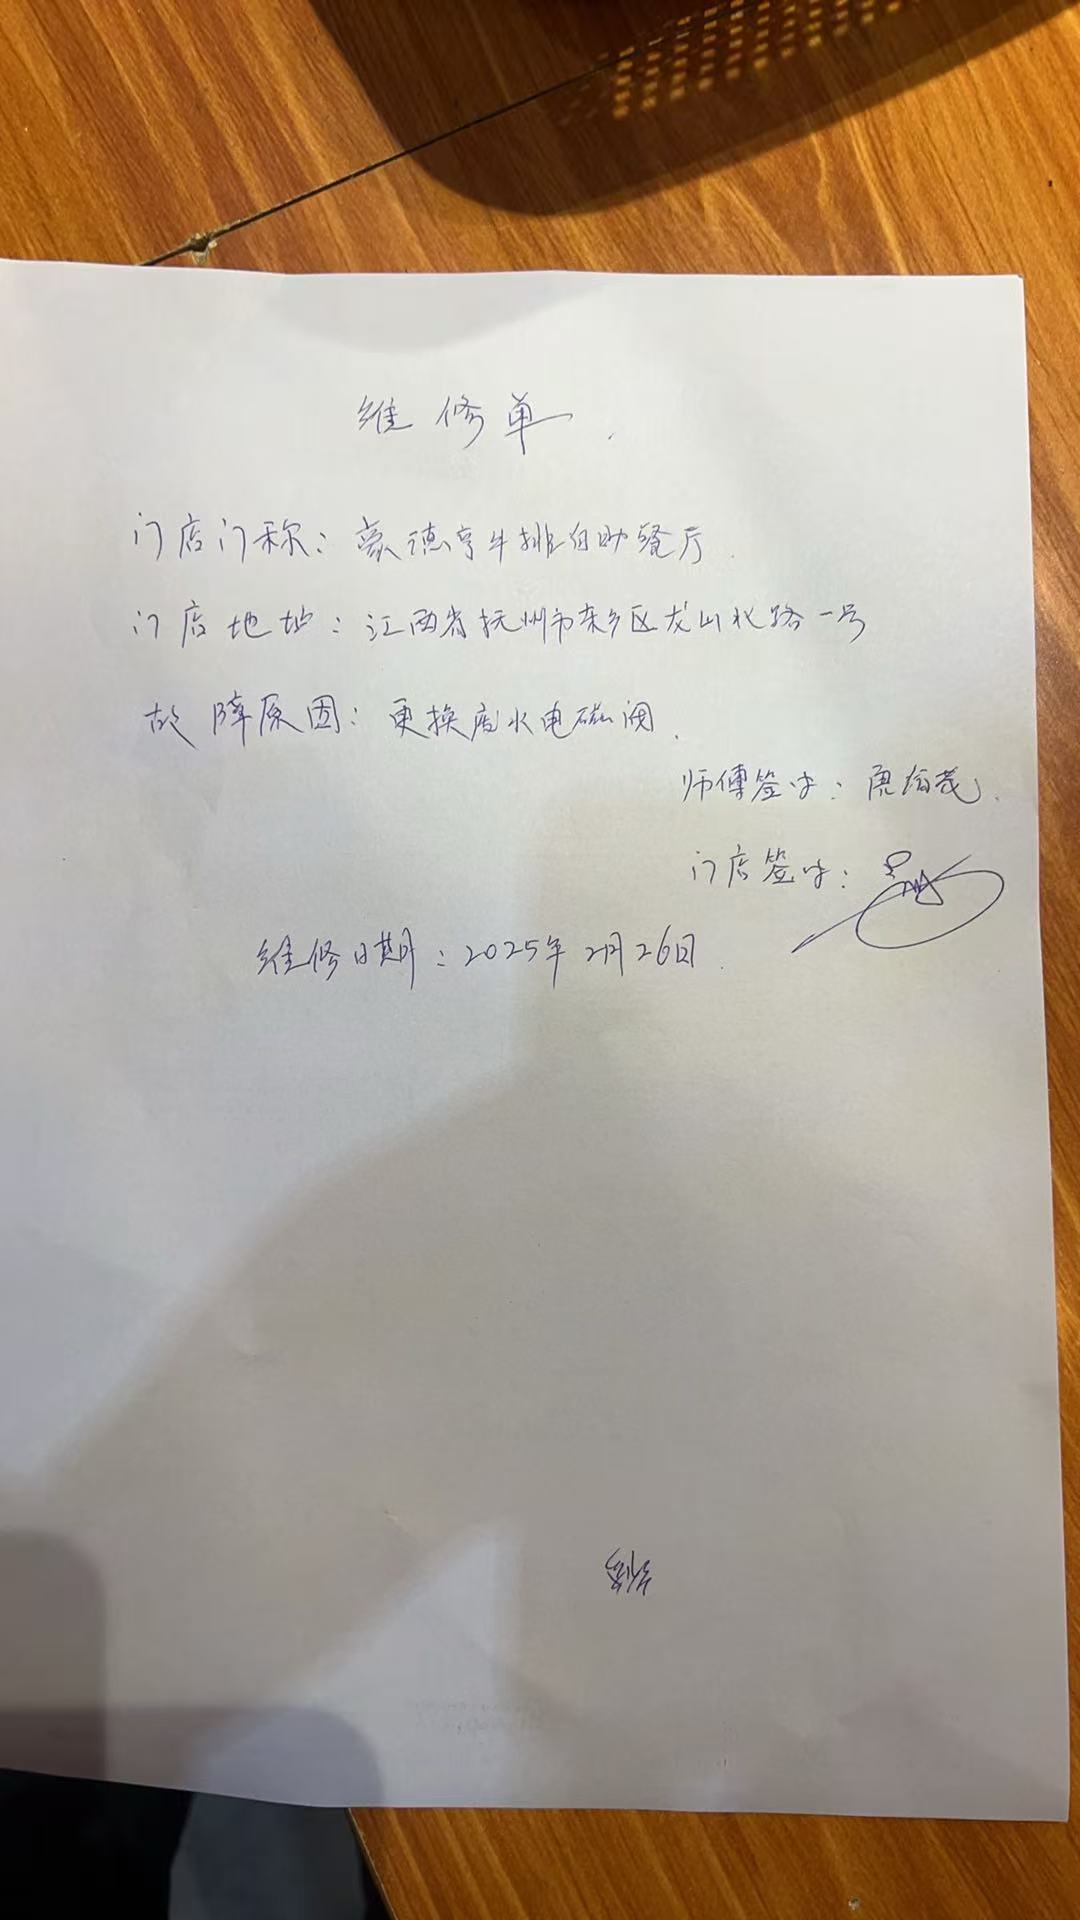 维修单.
门店门称：豪德亨牛排自助餐厅.
门店地址：江西省抚州市东乡区龙山北路一号
故障原因：更换店水电磁阀.
师傅签字：
门店签字：
维修日期：2025年2月26日.